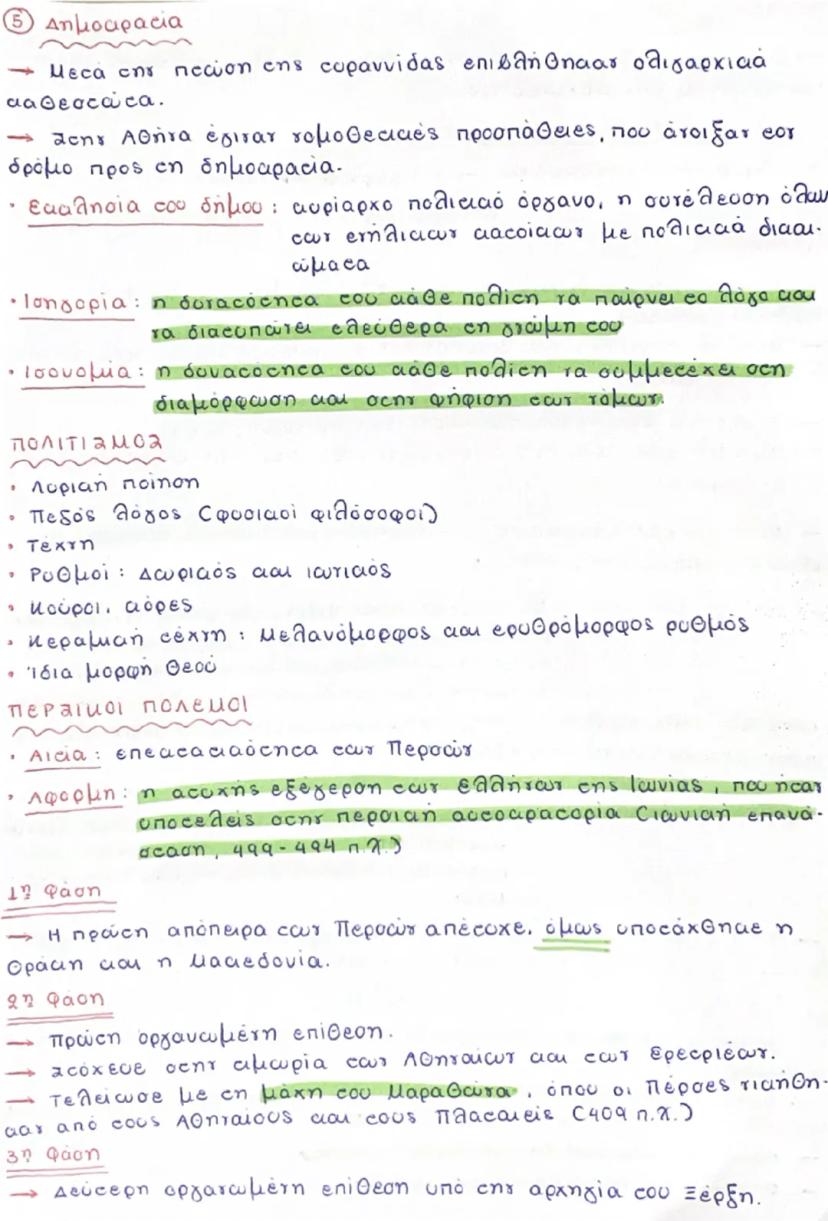 ⑤ Δημοκρατία
→ Μετά την πτώση της τυραννίδας επιβλήθηκαν ολιγαρχικά
καθεστώτα.
→ Στην Αθήνα έγιναν νομοθετικές προσπάθειες, που άνοιξαν τον
δρόμο προς τη δημοκρατία.
• Εκκλησία του δήμου: κυρίαρχο πολιτικό όργανο, η συνέλευση όλων
των ενήλικων κατοίκων με πολιτικά δικαι-
ώματα
• Ισηγορία: η δυνατότητα του κάθε πολίτη να παίρνει το λόγο και
να διατυπώνει ελεύθερα τη γνώμη του
• Ισονομία: η δυνατότητα του κάθε πολίτη να συμμετέχει στη
διαμόρφωση και στην ψήφιση των νόμων.
ΠΟΛΙΤΙΣΜΟΣ
• Λυρική ποίηση
• Πεζός λόγος (φυσικοί φιλόσοφοι)
• Τέχνη
• Ρυθμοί: Δωρικός και ιωνικός
• Κούροι, κόρες
• Κεραμική τέχνη: Μελανόμορφος και ερυθρόμορφος ρυθμός
• Ίδια μορφή Θεού
ΠΕΡΣΙΚΟΙ ΠΟΛΕΜΟΙ
• Αιτία: επεκτατικότητα των Περσών
• Αφορμή: η ατυχής εξέγερση των Ελλήνων της Ιωνίας, που ήταν
υποτελείς στην περσική αυτοκρατορία (Ιωνική επανά-
σταση, 499-494 π.Χ.)
1η Φάση
→ Η πρώτη απόπειρα των Περσών απέτυχε, όμως υποτάχθηκε η
Θράκη και η Μακεδονία.
2η Φάση
→ Πρώτη οργανωμένη επίθεση.
→ Στόχευε στην τιμωρία των Αθηναίων και των Ερετριέων.
→ Τελείωσε με τη μάχη του Μαραθώνα, όπου οι Πέρσες νικήθη-
καν από τους Αθηναίους και τους Πλαταιείς (409 π.Χ.)
3η Φάση
→ Δεύτερη οργανωμένη επίθεση υπό την αρχηγία του Ξέρξη.